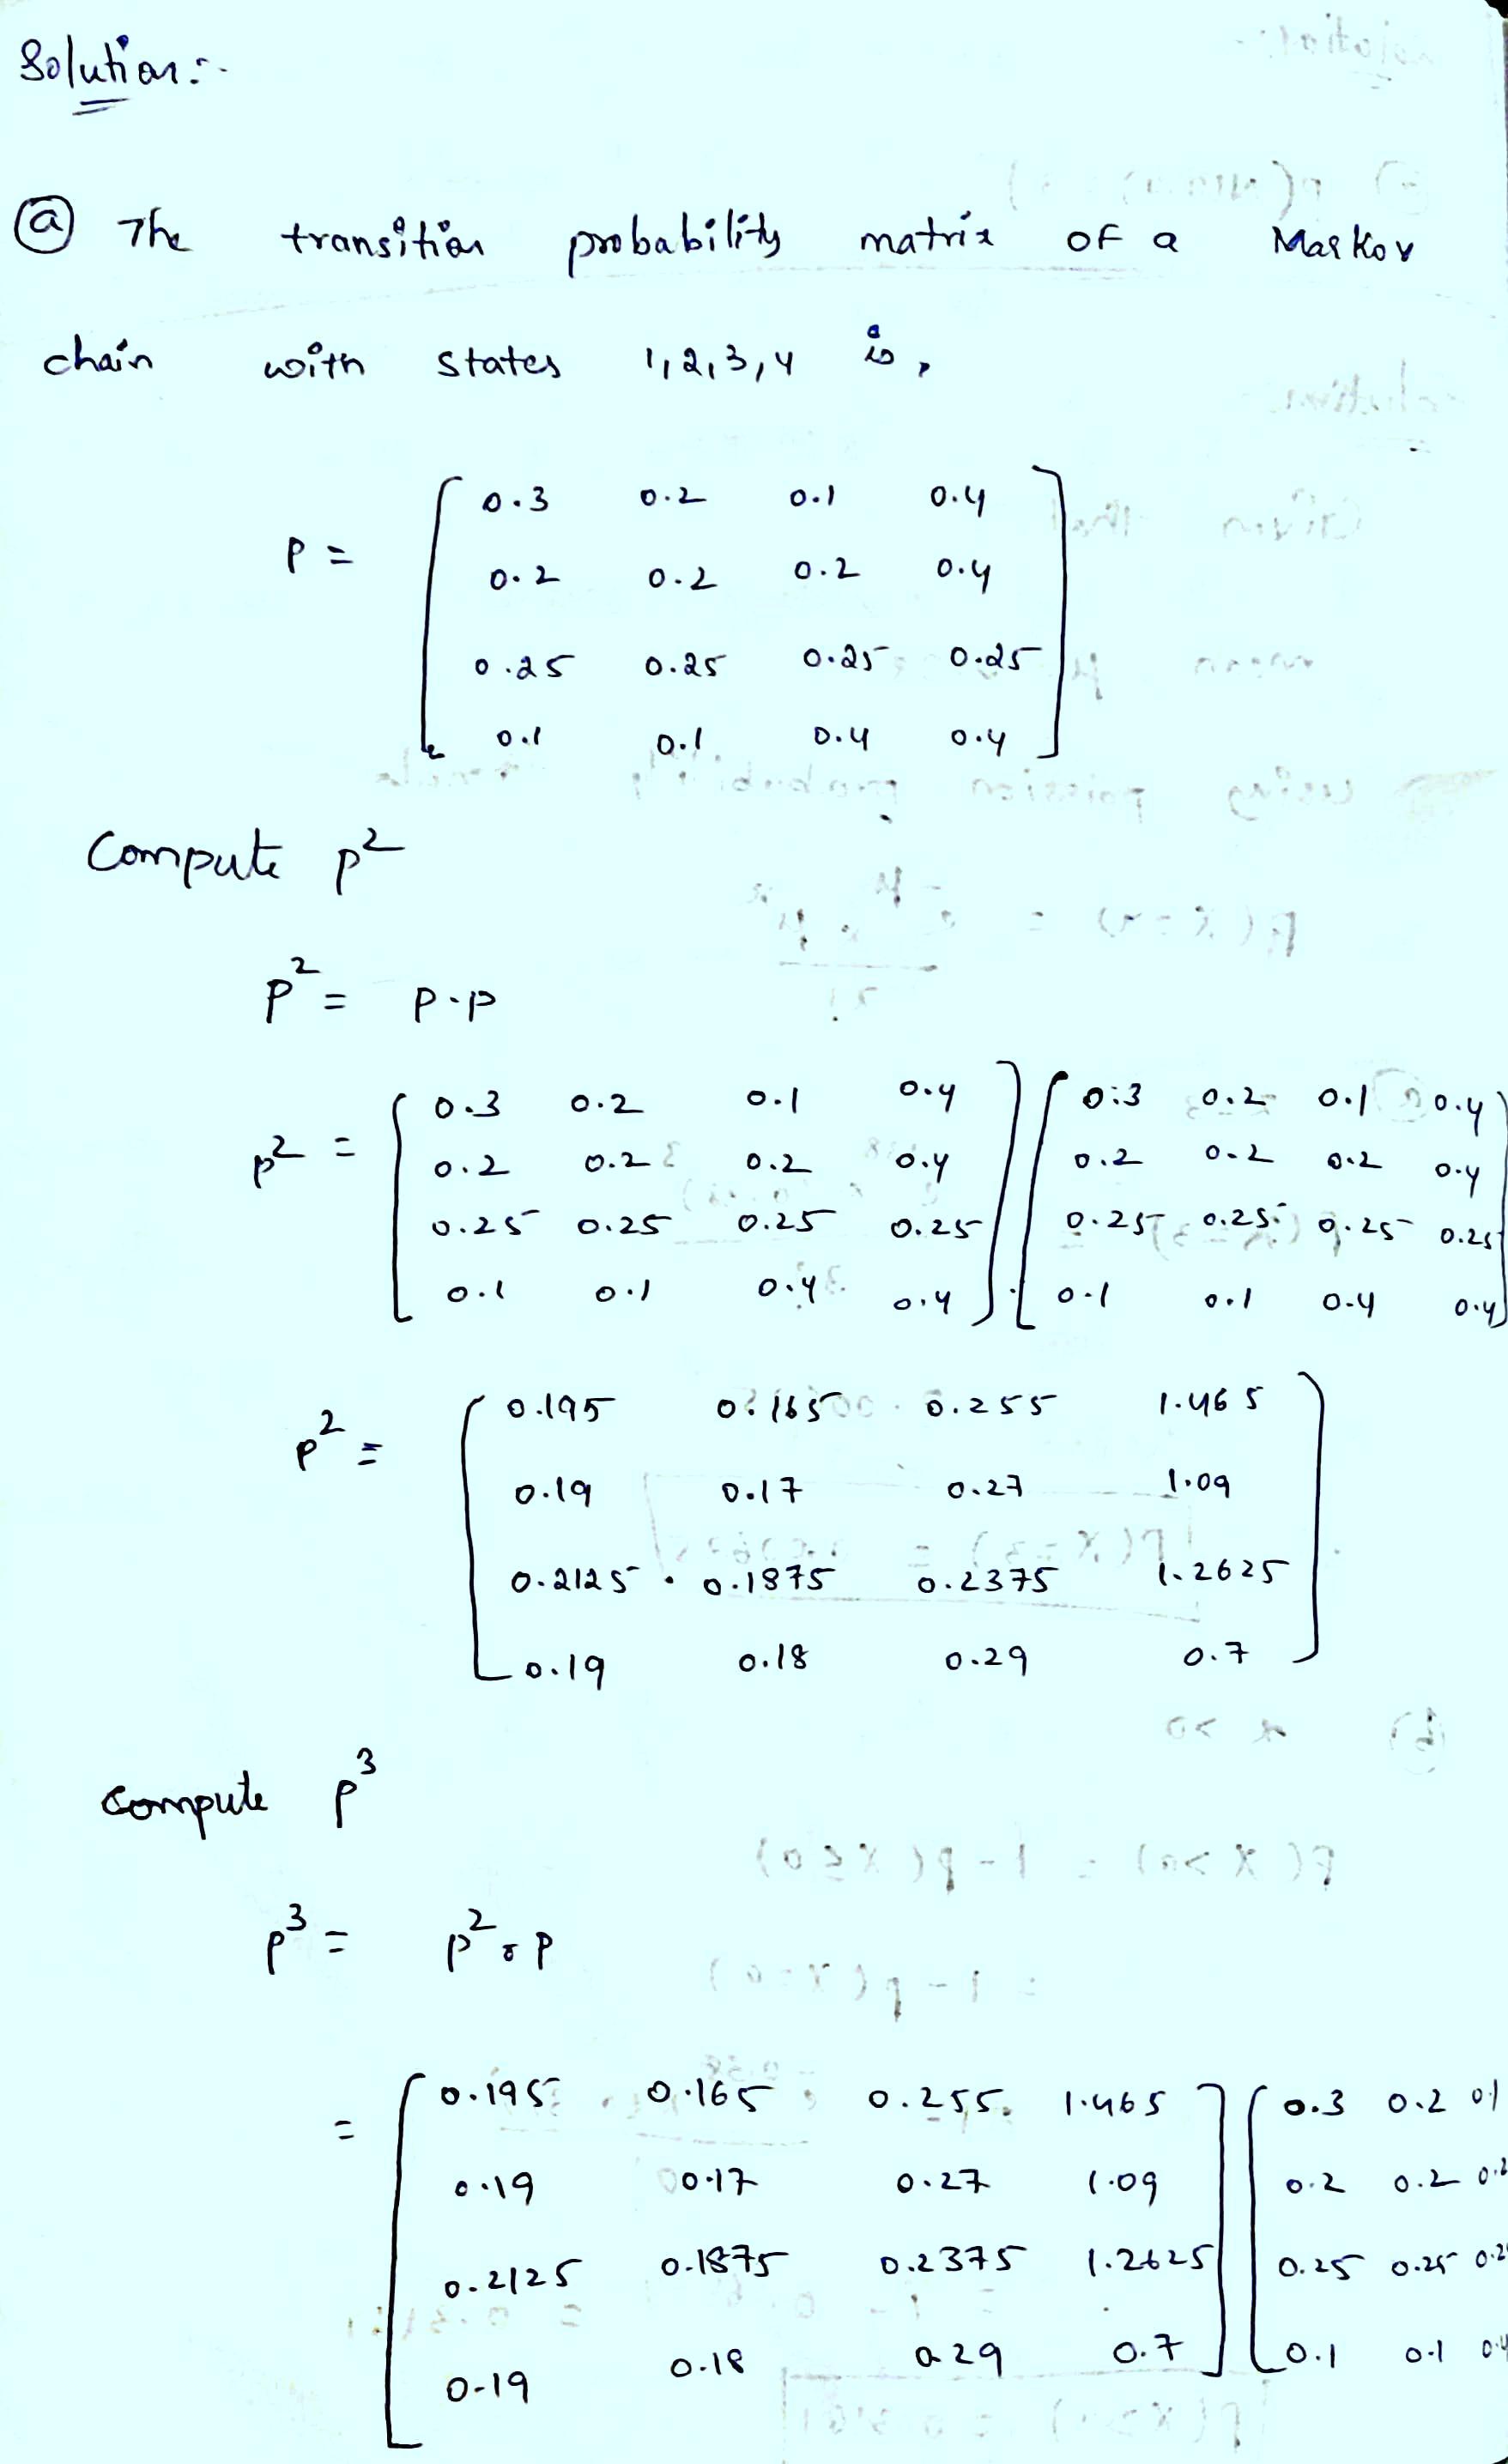 Solution:-
(a) The transition probability matrix of a Markov
chain with states 1,2,3,4 is,
P = [ 0.3 0.2 0.1 0.4
0.2 0.2 0.2 0.4
0.25 0.25 0.25 0.25
0.1 0.1 0.4 0.4 ]
Compute p²
p² = p.p
p² = [ 0.3 0.2 0.1 0.4 ] [ 0.3 0.2 0.1 0.4
0.2 0.2 0.2 0.4 0.2 0.2 0.2 0.4
0.25 0.25 0.25 0.25 0.25 0.25 0.25 0.25
0.1 0.1 0.4 0.4 0.1 0.1 0.4 0.4 ]
p² = [ 0.195 0.165 0.255 1.465
0.19 0.17 0.27 1.09
0.2125 0.1875 0.2375 1.2625
0.19 0.18 0.29 0.7 ]
compute p³
p³ = p² . p
= [ 0.195 0.165 0.255 1.465 ] [ 0.3 0.2 0.1
0.19 0.17 0.27 1.09 0.2 0.2 0.2
0.2125 0.1875 0.2375 1.2625 0.25 0.25 0.2
0.19 0.18 0.29 0.7 0.1 0.1 0.4